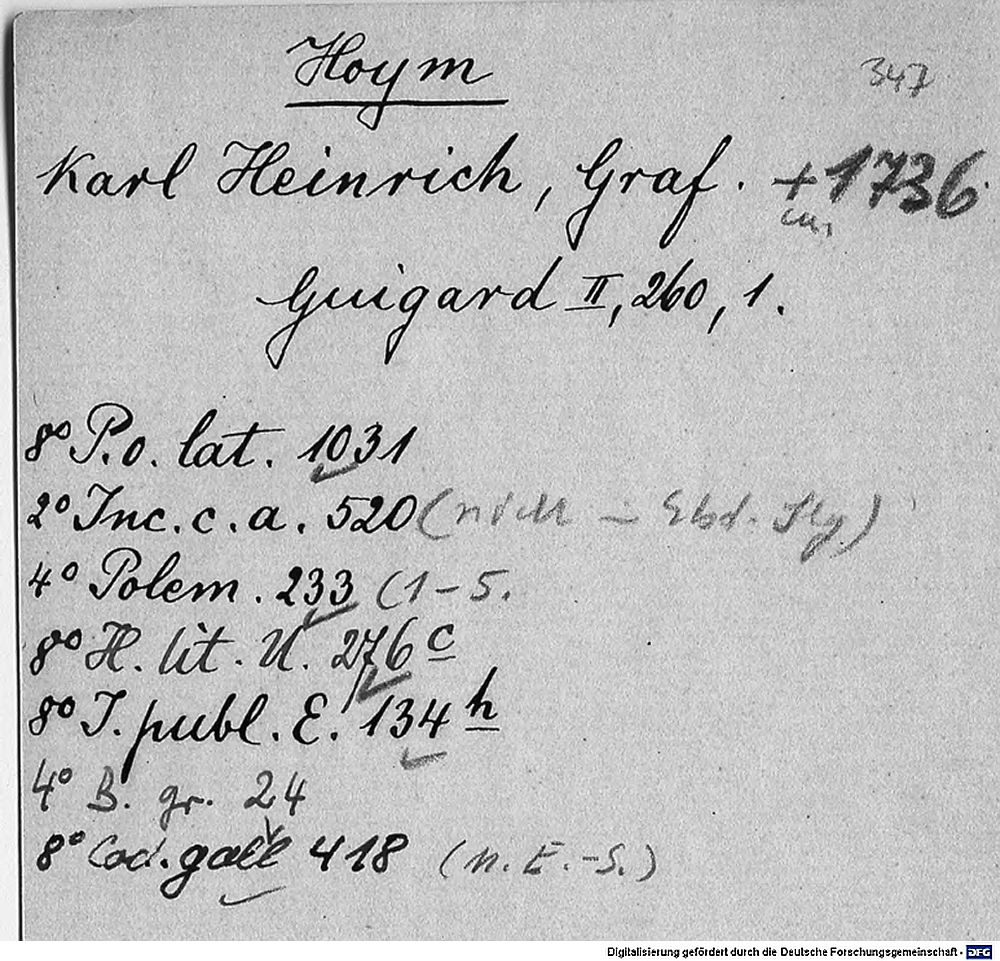 Hoym
347
Karl Heinrich, Graf. +1736.
Guigard II, 260, 1.
8° P.o. lat. 1031
2° Inc. c. a. 520 (nicht
4° Polem. 233 (1-5.
8° H. lit. U. 276 c
8° J. publ. E. 134 h
4° B. gr. 24
8° Cod. gall 418 (n. E.-S.)
Digitalisierung gefördert durch die Deutsche Forschungsgemeinschaft - DFG